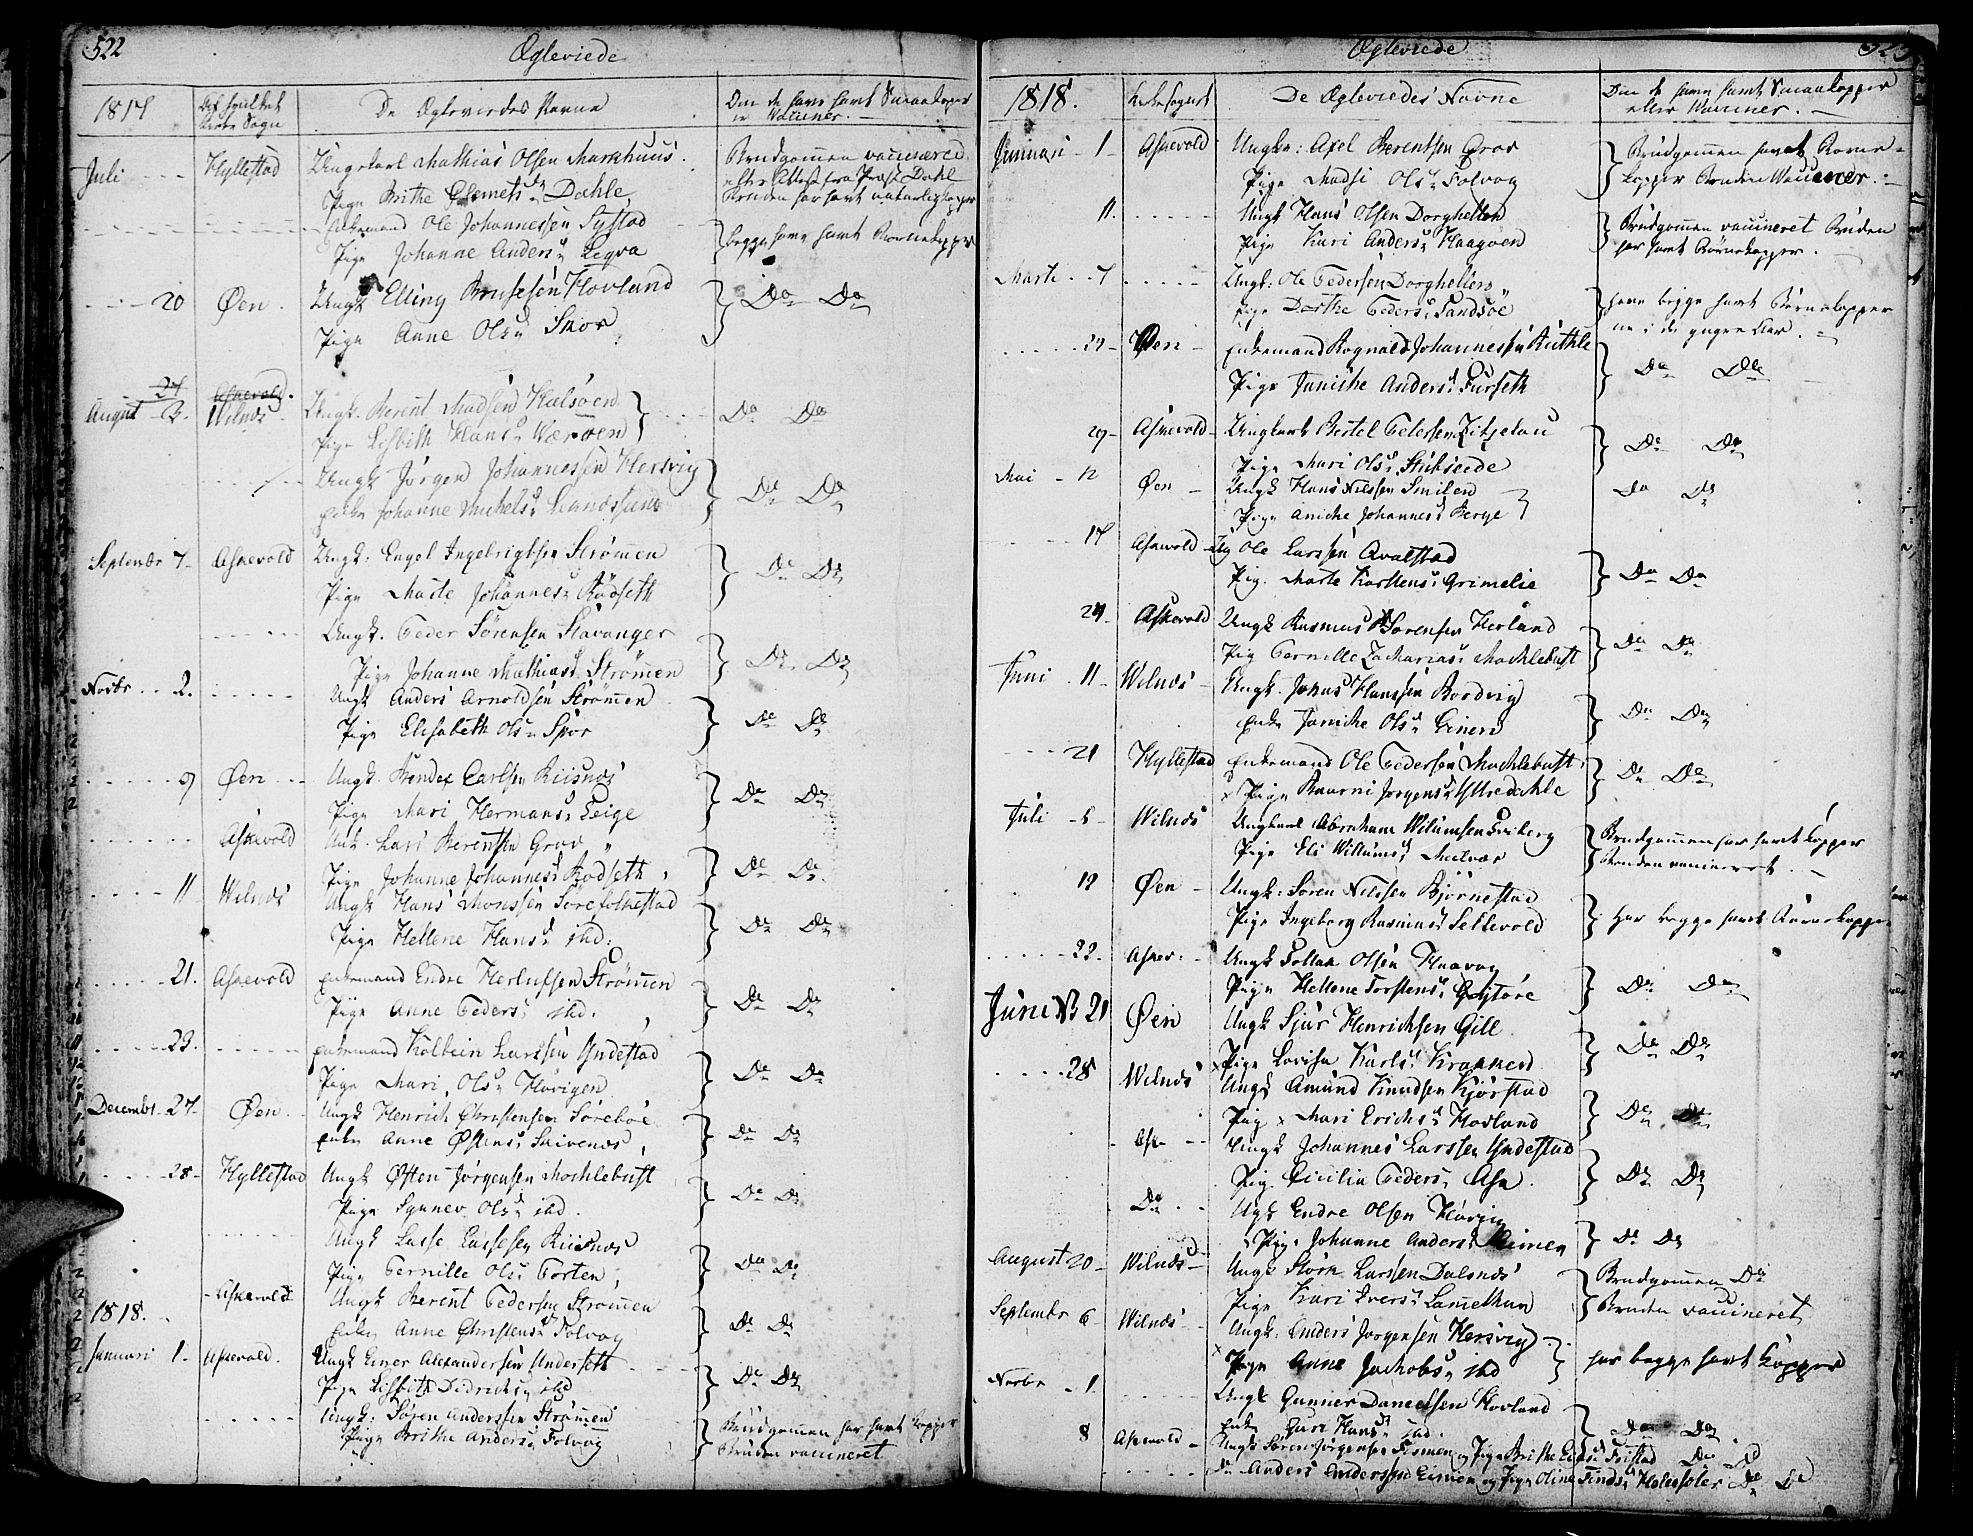 522
Ægteviede
1817
De Ægteviedes Navne
Om de have havt Smaakopper
er Vacciner.
Juli
Hyllestad
Ungkarl Mathias Olsen Markhuus.
Pige Brithe Clemets Dr Dahle
Brudgommen vaccinered
efter Attest fra Præst Dahl
Bruden har havt naturlig kopper
Enkemand Ole Johannessen Systad
Pige Johanne Andersd Leqva
begge have havt Børnekopper
20 Øen
Ungk Elling Brusesön Hovland
Pige Anne Olsd Skor
Do Do
27 Askevold.
August 3. Wilnæs
Ungk. Berent Madsen Kalsöen
Pige Lisbith Hansd Værøen
Do Do
Ungk Jörgen Johannessen Hersvig
Enke Johanne Michelsd
Do Do
September 7 Askevold
Ungk: Engel Ingebrigtsen Strömen
Pige Marte Johannesd Rödseth
Do Do
Ungk. Peder Sörensen Stavanger
Pige Johanne Mathiasd Strömmen
Do Do
Novbr 2.
Ungk Anders Arnoldsen Strömmen
Pige Elisabeth Olsd Spor
Do Do
9 Øen
Ungk. Bendix Carlsen Riisnæs
Pige Mari Hermansd Leige
Do Do
Askevold
Ungk. Lars Berentsen Grov
Pige Johanne Johannesd Rodseth
Do Do
11 Wilnæs
Ungk Hans Monssen Sörefolkestad
Pige Hellene Hansd ibd.
Do Do
21. Askevold
Enkemand Endre Herlufsen Strömmen
Pige Anne Pedersd ibd.
Do Do
23.
Enkemand Kolbein Larssen Yndestad
Pige Mari Olsd Hovigen
Do Do
Decembr. 27 Øen
Ungk Henrich Christensen Söreböe
Enke Anne Østensd Saivenæs
Do Do
28 Hyllestad
Ungk Østen Jörgensen Mochlebust
Pige Synnev Olsd ibd.
Do Do
Ungk Lasse Lassesen Riisnæs
Pige Pernille Olsd Porten
Do Do
Askevold
Ungk Berent Pedersen Strömen
Enke Anne Christensd Folvog
Do Do
1818.
Januari 1 Askevold.
Ungk Einer Alexandersen Underseth
Pige Lisbith Didrichsd ibd
Do Do
Ungk: Sören Anderssen Strömmen
Pige Brithe Andersd Folvog
Brudgommen har havt kopper
Bruden vaccineret
Ægteviede
1818.
Kirkesognet
De Ægteviedes Navne
Om de have havt Smaakopper
eller Vacciner.
Januari 1 Askevold
Ungkr: Axel Berentsen Grov
Pige Madsi Olsd Folvog
Brudgommen havt Børne-
kopper Bruden Vacciner.
11.
Ungk Hans Olsen Dorghellen
Pige Kari Andersd Haagöen
Brudgommen vaccineret Bruden
har havt Börnekopper.
Marti 7
Ungk: Ole Pedersen Dorghellen
Pige Dorthe Pedersd Sandsöe
have begge havt Börnekopper
ne i de yngre Aar.
29 Øen
Enkemand Rognald Johannessen Kuthle
Pige Janiche Andersd Furseth
Do Do
29 Askevold
Ungkarl Bertel Pedersen
Pige Mari Olsd Stubseide
Do Do
Mai 12 Øen
Ungk Hans Nilssen Smilen
Pige Aniche Johannesd Berge
Do Do
17 Askevold
Ug Ole Larssen Qvalstad
Pig. Marte Karstensd Grimelie
Do Do
24 Askevold
Ungk Rasmus Sörensen Herland
Pig Pernille Zachariasd Mochlebust
Do Do
Juni 11 Wilnæs
Ungk. Jonas Hanssen Bordvig
Enke Janiche Olsd Einen
Do Do
21 Hyllestad
Enkemand Ole Pedersen Mochlebust
x Pige Baarni Jorgensd Ytredahle
Do Do
Juli 5 Wilnæs
Ungkarl Abraham Wilumsen Sviberg
Pige Eli Willumsd Melvær
Brudgommen har havt kopper
Bruden vaccineret.
19 Øen
Ungk: Soren Nilssen Björnestad
Pige Ingeborg Rasmusd Sellevold
Har begge havt Börnekopper
22. Askev.
Ungk Follak Olsen Haavog
Pige Hellene Torstensd
Do Do
Juni NB 21 Øen
Ungk Sjur Henrichsen Gill
x Pige Lovisa Karlsd
Do Do
28 Wilnæs
Ungk Amund Knudsen Kjörstad
Pig x Mari Erichsd Hovland
Do Do
Ask
Ungk Johannes Larssen Yndestad
Pig. Cicilia Pedersd Ask
Do Do
Do
Ugk Endre Olsen Hovig
Pige Johanne Andersd Eimen
Do Do
August 20 Wilnæs
Ungk Störk Larssen Dalsnæs
Pige Kari Iversd
Brudgommen Do
Bruden vaccineret
Septembr 6 Wilnæs
Ungk: Anders Jorgensen Hersvig
x Pige Anne Jachobsd ibd
har begge havt kopper
Novbr 1.
Ungk Gunner Danielsen Hovland
Enke Guri Hansd ibd.
Do Do
8 Askevold
Ungk Sören Jörgensen og Pige Brithe
Do Do
Do Anders Andersen Eimen og Pige Oline
Do Do